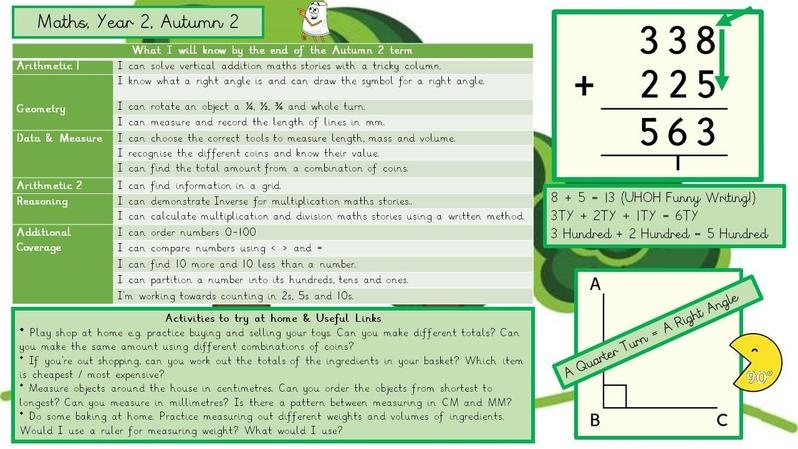 Maths, Year 2, Autumn 2
What I will know by the end of the Autumn 2 term
Arithmetic 1
I can solve vertical addition maths stories with a tricky column.
Geometry
I know what a right angle is and can draw the symbol for a right angle.
I can rotate an object a ¼, ½, ¾ and whole turn.
I can measure and record the length of lines in mm.
Data & Measure
I can choose the correct tools to measure length, mass and volume.
I recognise the different coins and know their value.
I can find the total amount from a combination of coins.
Arithmetic 2
I can find information in a grid.
Reasoning
I can demonstrate Inverse for multiplication maths stories..
I can calculate multiplication and division maths stories using a written method.
Additional
Coverage
I can order numbers 0-100
I can compare numbers using < > and =
I can find 10 more and 10 less than a number.
I can partition a number into its hundreds, tens and ones.
I'm working towards counting in 2s, 5s and 10s.
Activities to try at home & Useful Links
• Play shop at home e.g. practice buying and selling your toys. Can you make different totals? Can
you make the same amount using different combinations of coins?
• If you're out shopping, can you work out the totals of the ingredients in your basket? Which item
is cheapest / most expensive?
• Measure objects around the house in centimetres. Can you order the objects from shortest to
longest? Can you measure in millimetres? Is there a pattern between measuring in CM and MM?
• Do some baking at home. Practice measuring out different weights and volumes of ingredients.
Would I use a ruler for measuring weight? What would I use?
338
+ 225
563
1
8 + 5 = 13 (UHOH Funny Writing!)
3TY + 2TY + 1TY = 6TY
3 Hundred + 2 Hundred = 5 Hundred
A
A Quarter Turn = A Right Angle
90°
B C